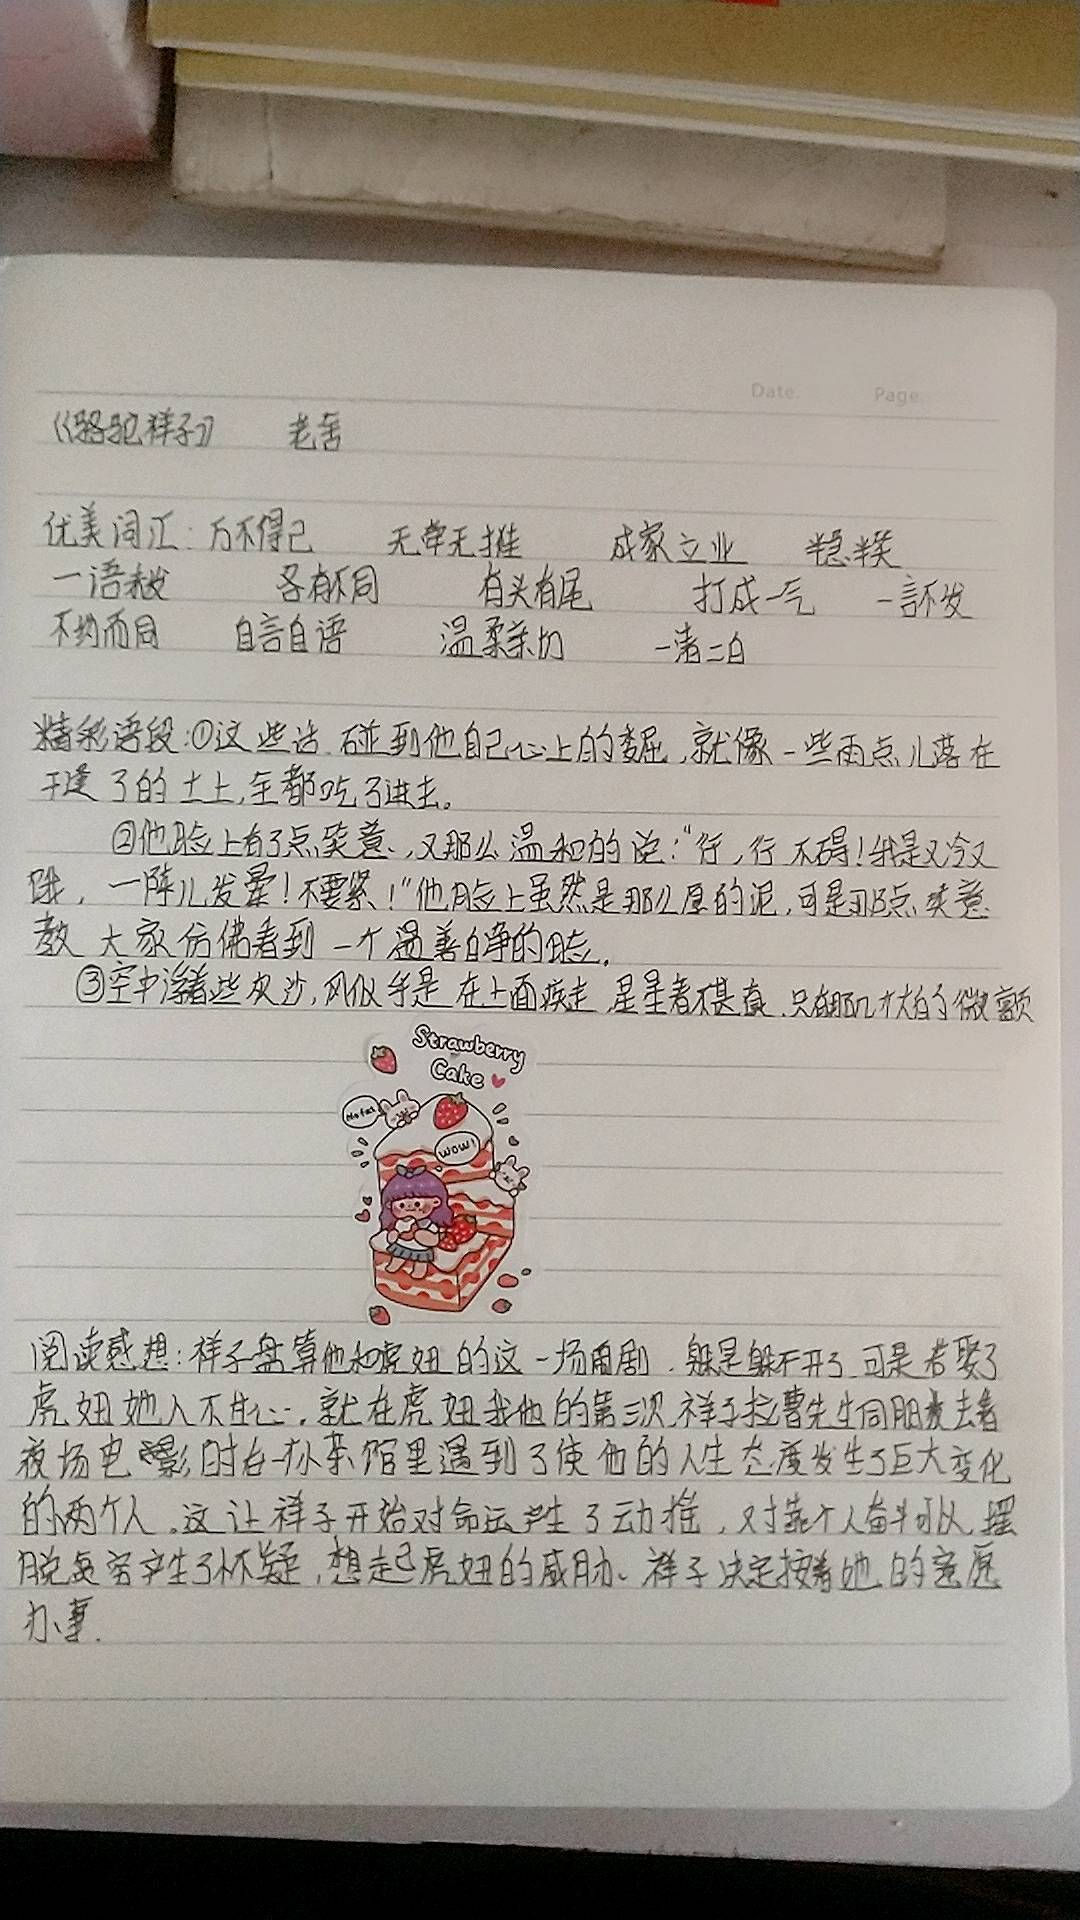 Date. Page
《骆驼祥子》 老舍
优美词汇：万不得已 无牵无挂 成家立业
一语未发 各有不同 有头有尾 打成一气 一言不发
不约而同 自言自语 温柔亲切 一清二白
精彩语段：①这些话 碰到他自己心上的委屈，就像一些雨点儿落在
干透了的土上，全都吃了进去。
②他脸上有了点笑意，又那么温和的说：“行，行 不碍！我是又冷又
饿，一阵儿发晕！不要紧！”他脸上虽然是那么厚的泥，可是那点笑意
教大家仿佛看到一个温善白净的脸。
③空中浮着些灰沙，风似乎是在上面疾走，星星看不甚真，只有那几个大的了微颤
Strawberry
Cake
wow!
阅读感想：祥子盘算他和虎妞的这一场闹剧，躲是躲不开了，可是若娶了
虎妞她入不生心，就在虎妞找他的第三次，祥子拉曹先生同朋友去看
夜场电影时在一小茶馆里遇到了使他的人生态度发生了巨大变化
的两个人。这让祥子开始对命运产生了动摇，对靠个人奋斗可以摆
脱贫穷产生了怀疑，想起虎妞的威胁、祥子决定按着她的意愿
办事.